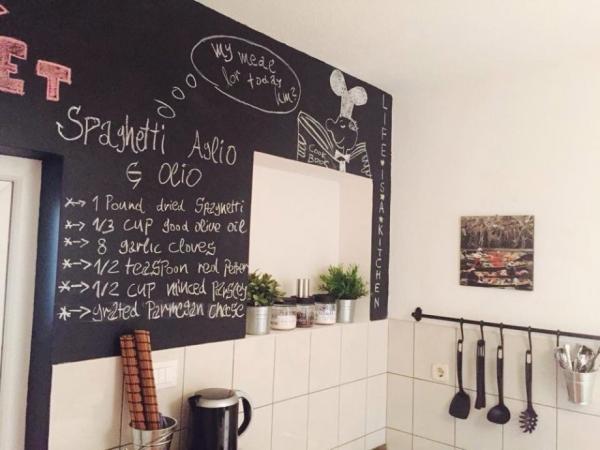 ET
my meal
for today
hm?
COOK
BOOK
LIFE*IS*A*KITCHEN
Spaghetti Aglio
& Olio
*-> 1 Pound dried Spaghetti
*-> 1/3 cup good olive oil
*-> 8 garlic cloves
*-> 1/2 teaspoon red Pepper
*-> 1/2 cup minced Parsley
*-> grated Parmesan cheese